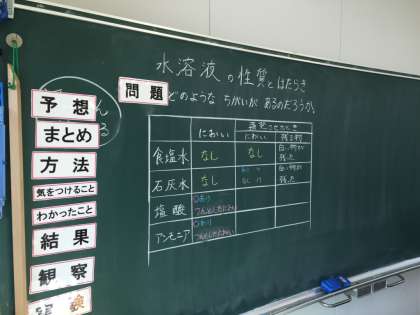 水溶液の性質とはたらき
問題
どのような ちがいが あるのだろうか。
予想
まとめ
方法
気をつけること
わかったこと
結果
観察
実験
蒸発させたとき
におい におい 残る物
食塩水 なし なし 白い物が残った
石灰水 なし なし 白い物が残った
塩酸 あり つんとしたにおい
アンモニア あり つんとしたにおい